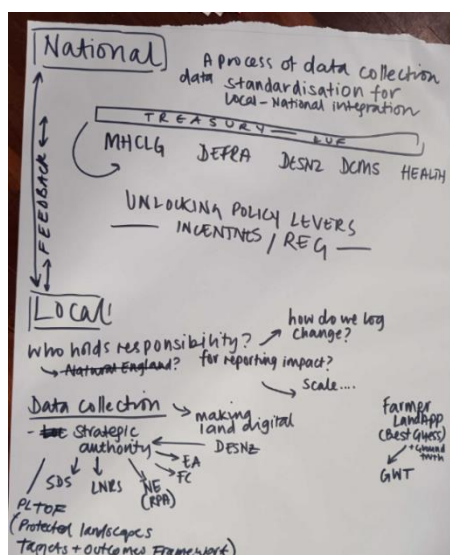 National
A process of data collection
data standardisation for
Local-National integration
TREASURY = LUF
MHCLG DEFRA DESNZ DCMS HEALTH
FEEDBACK
UNLOCKING POLICY LEVERS
— INCENTIVES / REG —
Local
Who holds responsibility?
how do we log
change?
Natural England?
for reporting impact?
Scale....
Data collection
making
land digital
- Strategic
authority
DESNZ
EA
FC
SDS LNRS NE
(RPA)
PLTOF
(Protected landscapes
Targets + Outcomes Framework)
Farmer
LandApp
(Best Guess)
+ Ground
truth
GWT